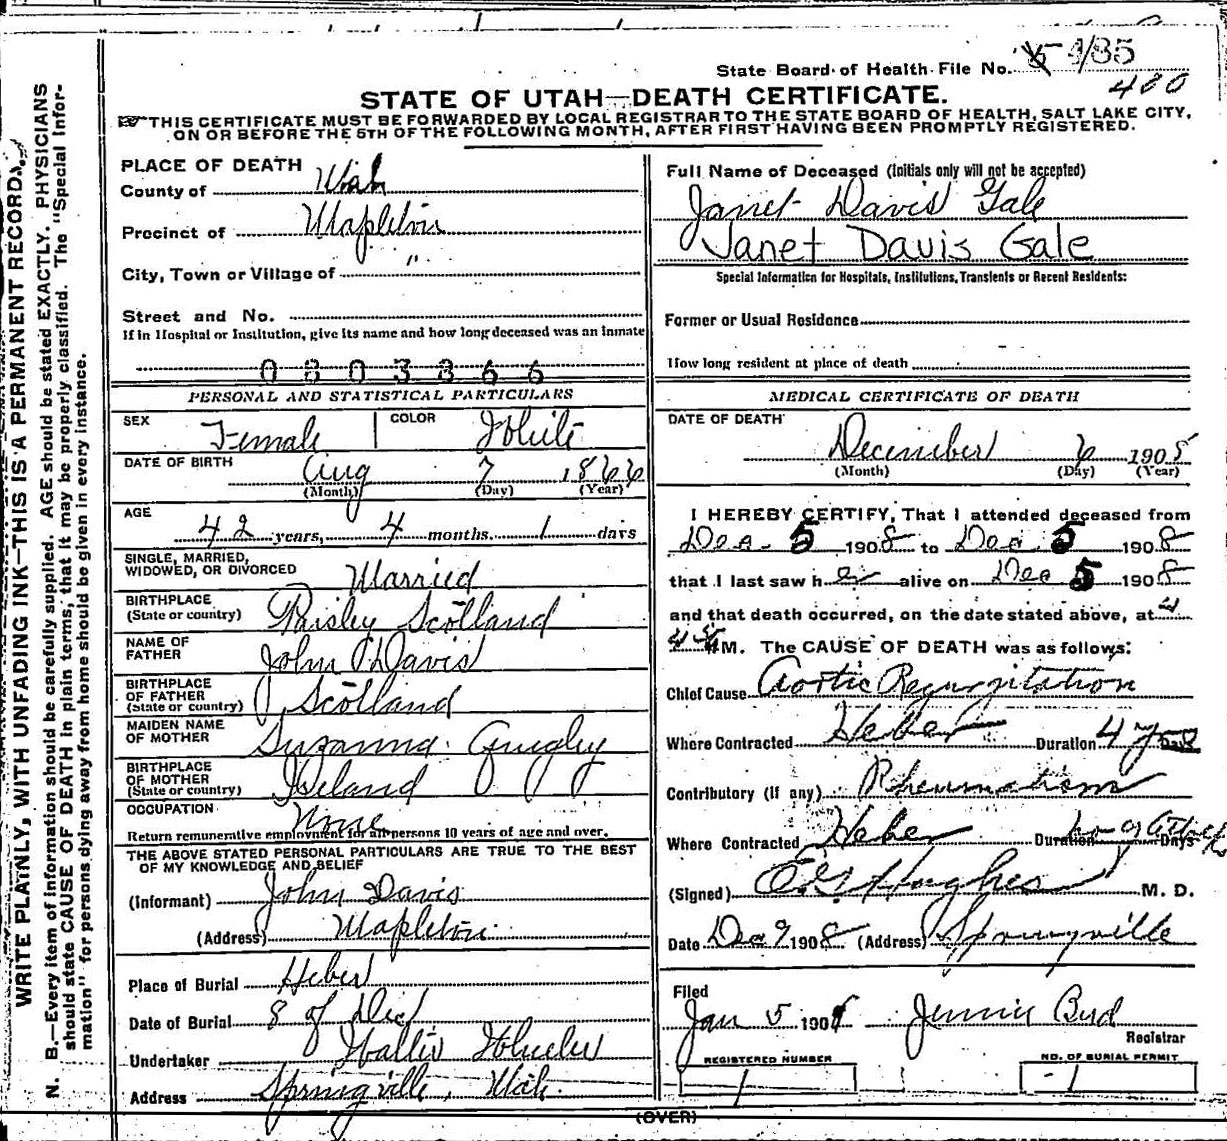 State Board of Health File No. 4185
480
STATE OF UTAH—DEATH CERTIFICATE.
THIS CERTIFICATE MUST BE FORWARDED BY LOCAL REGISTRAR TO THE STATE BOARD OF HEALTH, SALT LAKE CITY,
ON OR BEFORE THE 5TH OF THE FOLLOWING MONTH, AFTER FIRST HAVING BEEN PROMPTLY REGISTERED.
WRITE PLAINLY, WITH UNFADING INK—THIS IS A PERMANENT RECORD.
N. B.—Every item of information should be carefully supplied. AGE should be stated EXACTLY. PHYSICIANS
should state CAUSE OF DEATH in plain terms, that it may be properly classified. The "Special Infor-
mation" for persons dying away from home should be given in every instance.
PLACE OF DEATH
County of Utah
Precinct of Mapleton
City, Town or Village of "
Street and No.
If in Hospital or Institution, give its name and how long deceased was an inmate
0803866
PERSONAL AND STATISTICAL PARTICULARS
SEX Female COLOR White
DATE OF BIRTH Aug 7 1866
(Month) (Day) (Year)
AGE
42 years, 4 months. 1 days
SINGLE, MARRIED,
WIDOWED, OR DIVORCED Married
BIRTHPLACE
(State or country) Paisley Scotland
NAME OF
FATHER John Davis
BIRTHPLACE
OF FATHER
(State or country) Scotland
MAIDEN NAME
OF MOTHER Suzanna Quigley
BIRTHPLACE
OF MOTHER
(State or country) Ireland
OCCUPATION None
Return remunerative employment for all persons 10 years of age and over.
THE ABOVE STATED PERSONAL PARTICULARS ARE TRUE TO THE BEST
OF MY KNOWLEDGE AND BELIEF
(Informant) John Davis
(Address) Mapleton
Place of Burial Heber
Date of Burial 8 of Dec
Undertaker Wheeler
Address Springville, Utah
Full Name of Deceased (Initials only will not be accepted)
Janet Davis Gale
Janet Davis Gale
Special Information for Hospitals, Institutions, Transients or Recent Residents:
Former or Usual Residence
How long resident at place of death
MEDICAL CERTIFICATE OF DEATH
DATE OF DEATH
December 6 1908
(Month) (Day) (Year)
I HEREBY CERTIFY, That I attended deceased from
Dec. 5 1908 to Dec. 5 1908
that I last saw her alive on Dec 5 1908
and that death occurred, on the date stated above, at 4
M. The CAUSE OF DEATH was as follows:
Chief Cause Aortic Regurgitation
Where Contracted Heber Duration 4 y Days
Contributory (if any) Rheumatism
Where Contracted Heber Duration Days
(Signed) Hughes M. D.
Date Dec 9 1908 (Address) Springville
Filed
Jan 5 190 Jennie Bird
Registrar
REGISTERED NUMBER
1
NO. OF BURIAL PERMIT
1
(OVER)